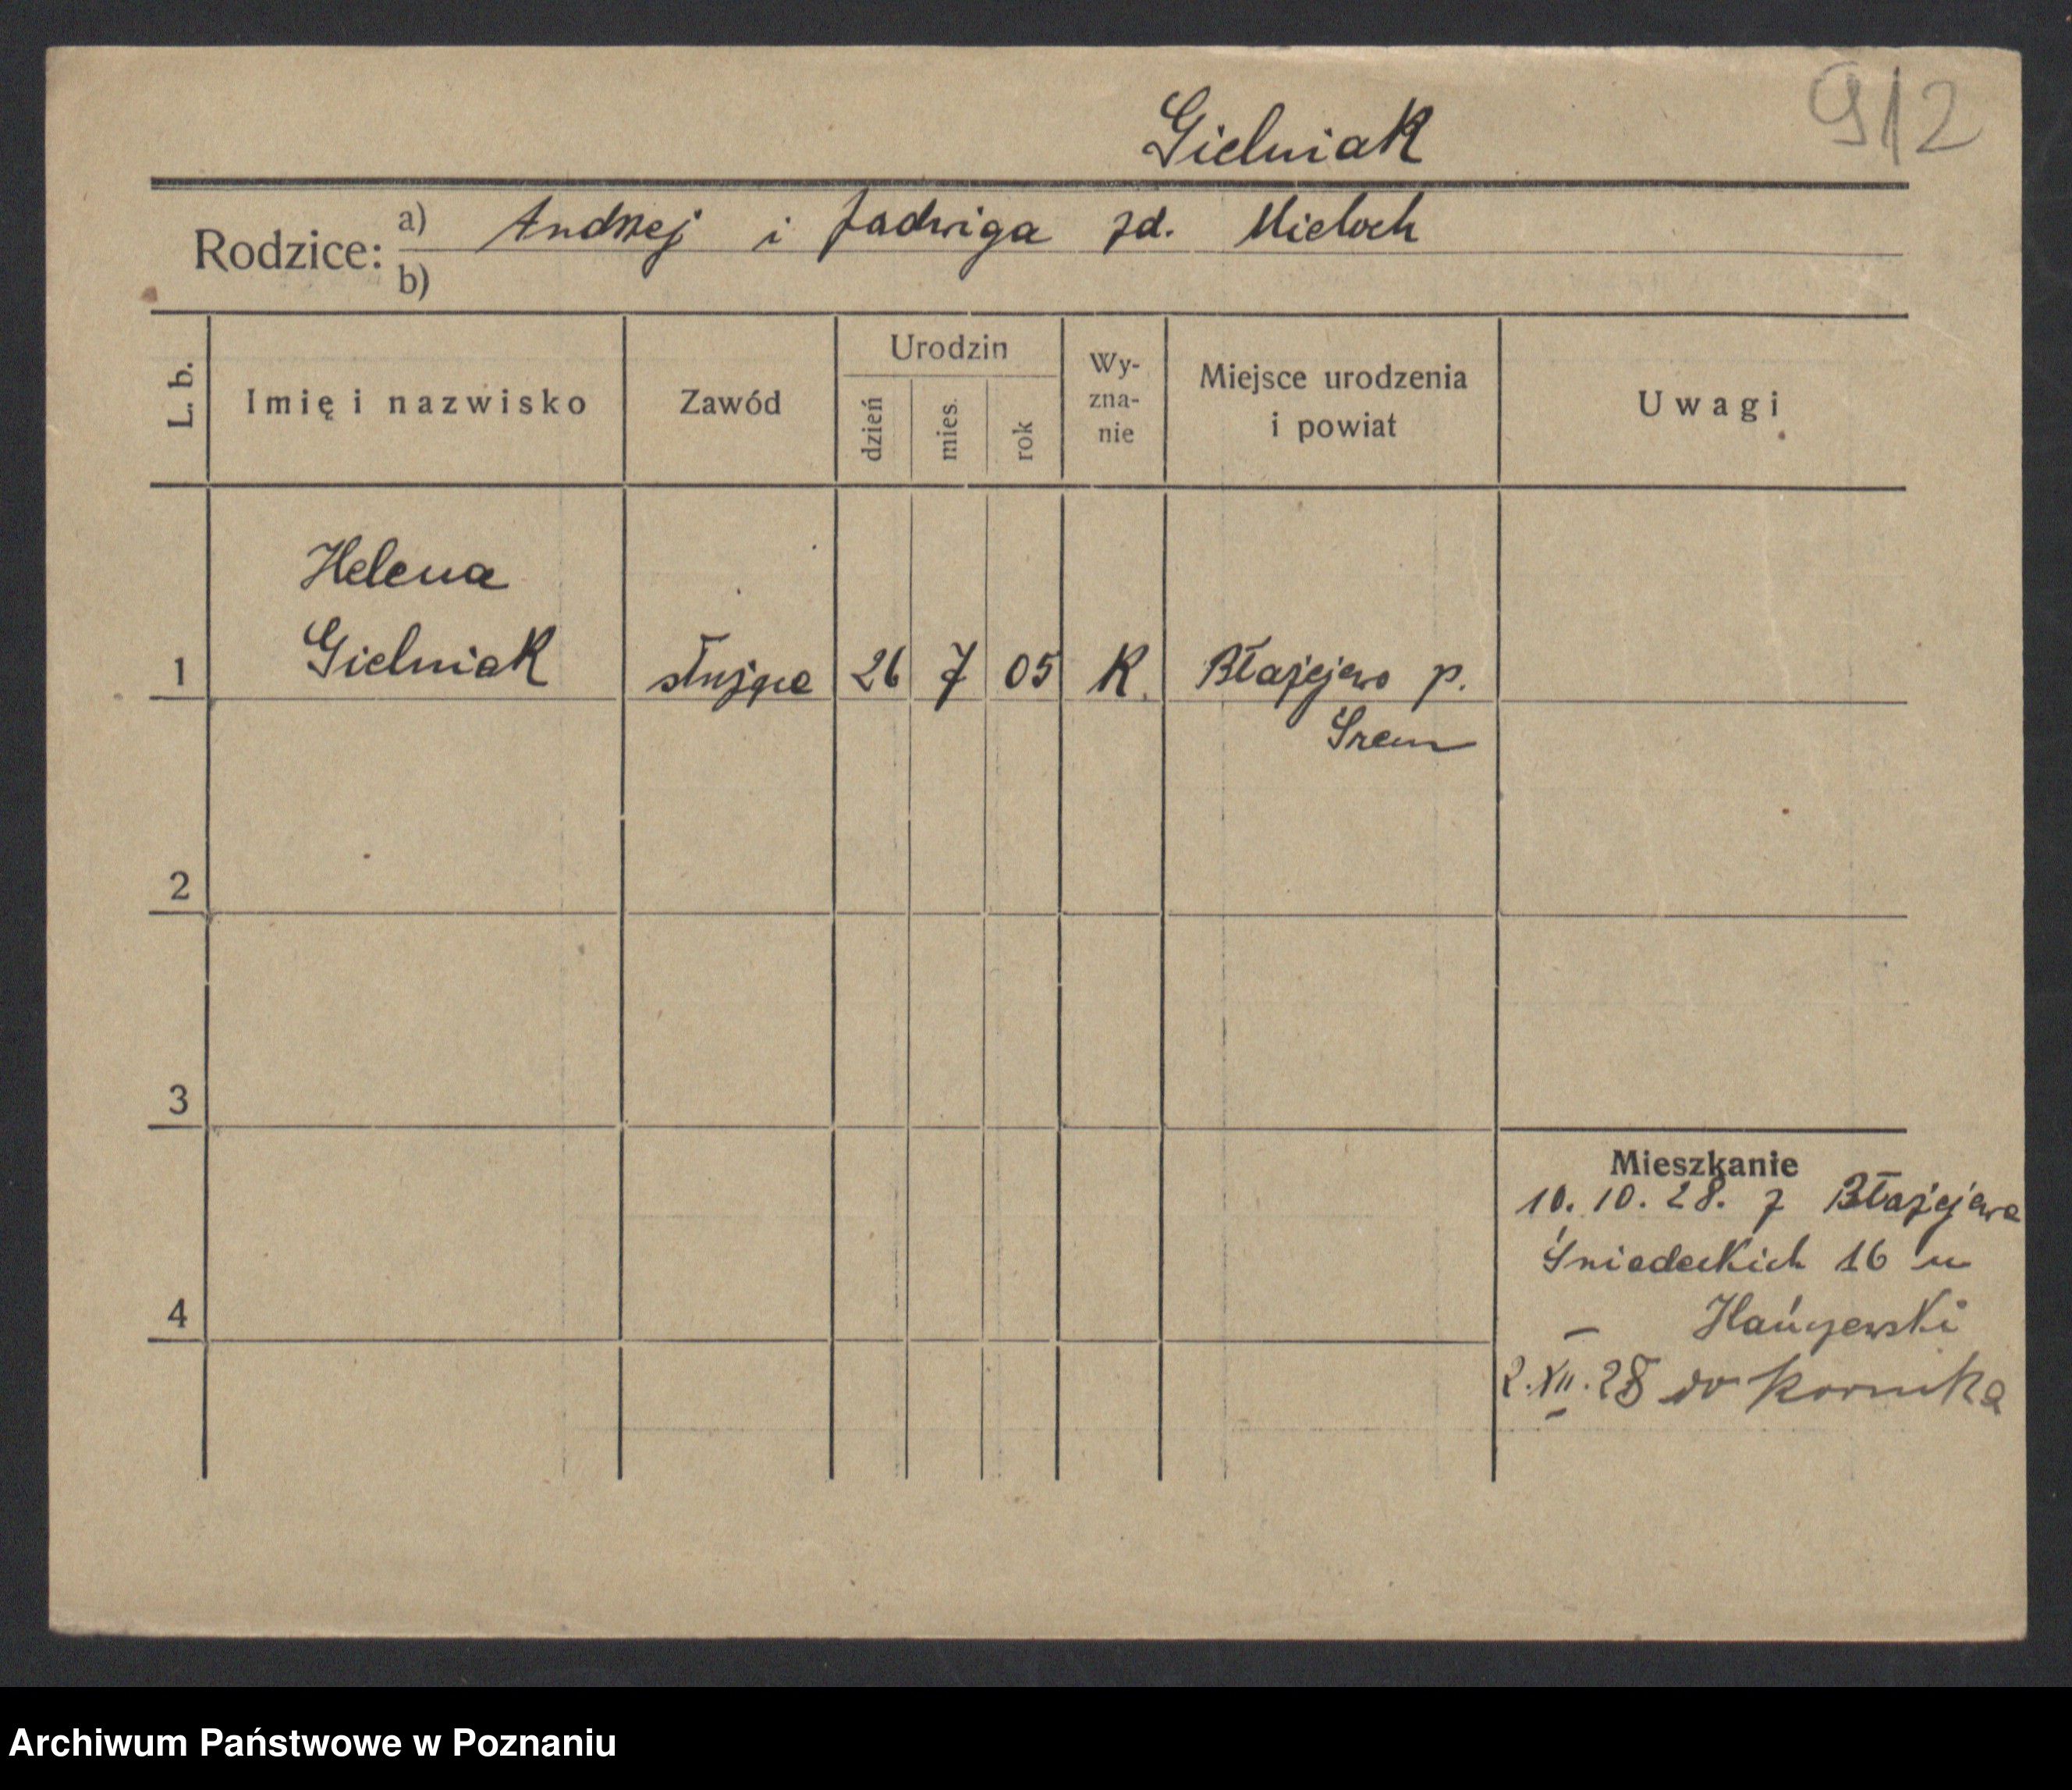 912
Gielniak
Rodzice: a) Andrzej i Jadwiga zd. Mieloch
b)
L. b. Imię i nazwisko Zawód Urodzin dzień mies. rok Wy-zna-nie Miejsce urodzenia i powiat Uwagi
Helena
1 Gielniak służąca 26 7 05 K. Błażejewo p.
Śrem
2
3
Mieszkanie
10.10.28. z Błażejewa
Śniadeckich 16 u
4
2.XII.28 do Kornika
Archiwum Państwowe w Poznaniu